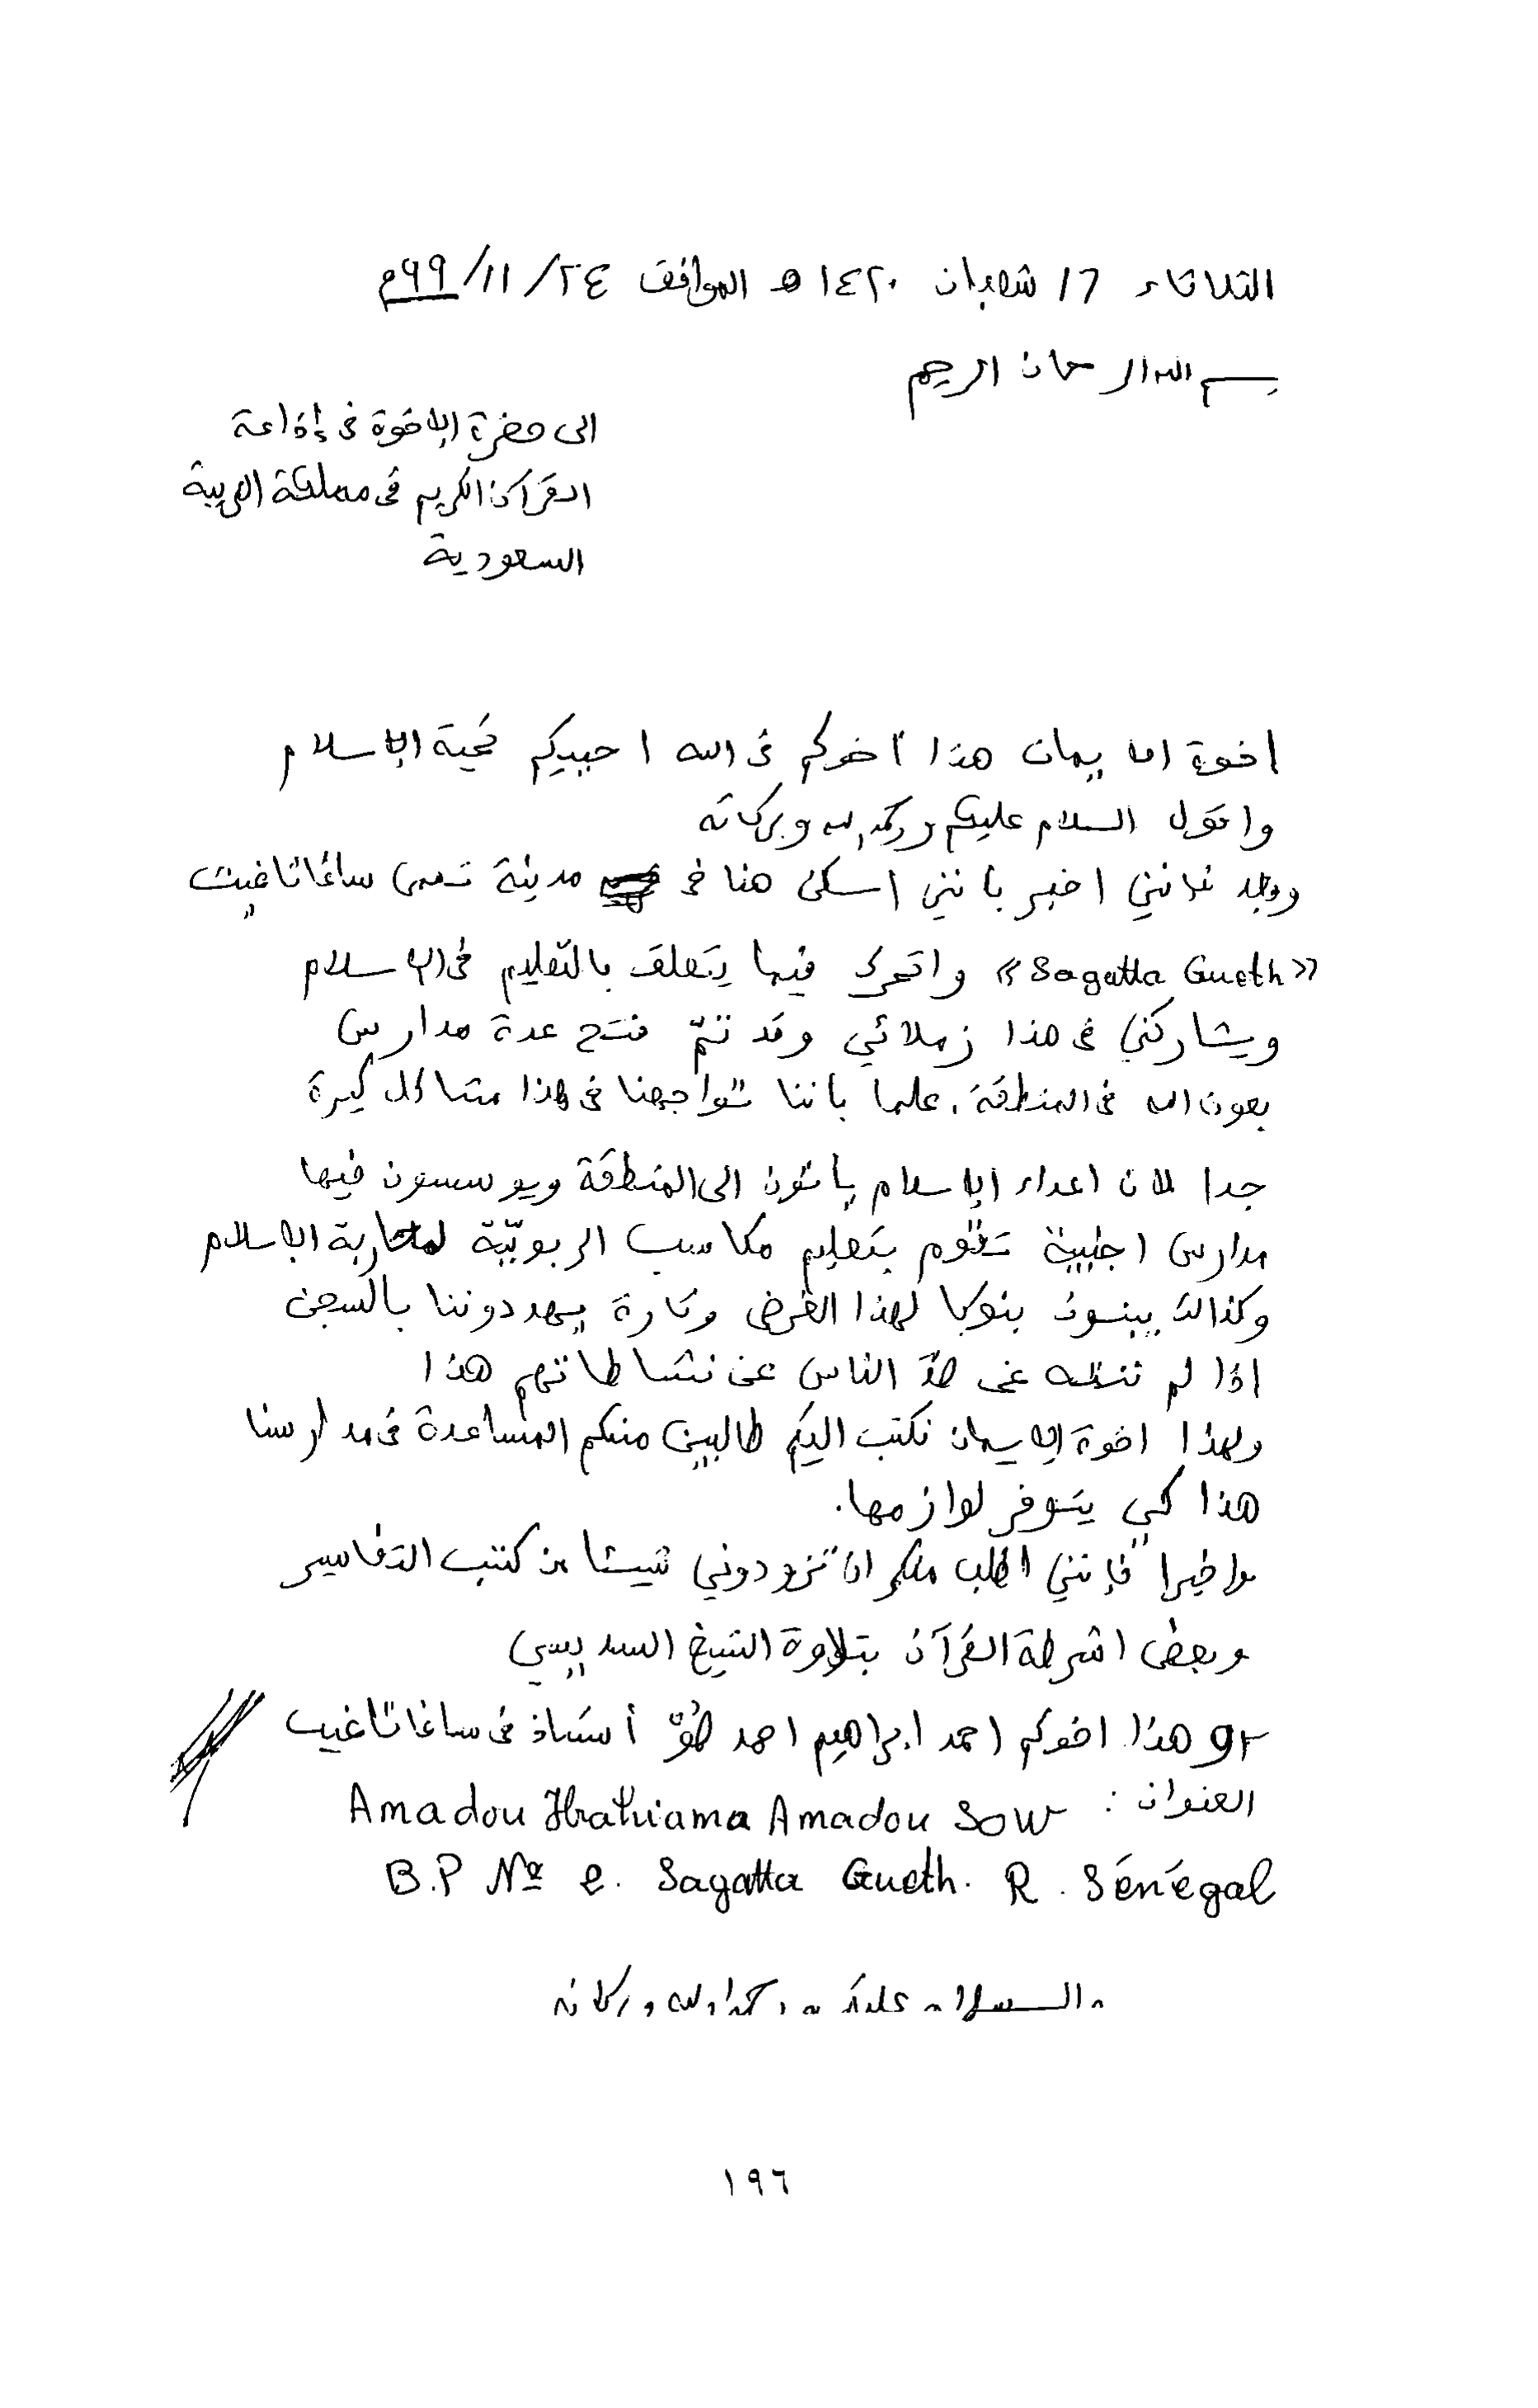 الثلاثاء ١٦ شعبان ١٤٢٠ ه الموافق ٢٤/١١/٩٩م
بسم الله الرحمان الرحيم
الى حضرة الإخوة فى إذاعة
القرآن الكريم فى مملكة العربية
السعودية
إخوة الايمان هذا أخوكم فى الله احييكم تحية الإسلام
واقول السلام عليكم ورحمة الله وبركاته
وبعد فإننى اخبر بأننى اسكن هنا فى مدينة تسمى ساغاتاغيث
«Sagatta Gueth» واتحرك فيما يتعلق بالتعليم فى الإسلام
ويشاركني فى هذا زملائي وقد تتمّ فتح عدة مدارس
بعون الله فى المنطقة. علما بأننا تواجهنا فى هذا مشاكل كبيرة
جدا لان اعداء الإسلام يأتون الى المنطقة ويوسسون فيها
مدارس اجنبية تقوم بتعليم مكاسب الربويّة لمحاربة الاسلام
وكذالك يبنون بنوكا لهذا الغرض وتارة يهددوننا بالسجن
اذا لم ننته عن صدّ الناس عن نشاطاتهم هذا
ولهذا اخوة الإيمان نكتب اليكم طالبين منكم المساعدة فى مدارسنا
هذا كي يتوفر لوازمها.
واخيرا فإنني اطلب منكم ان تزودوني شيئا من كتب التفاسير
وبعض اشرطة القرآن بتلاوة الشيخ السديسي
هذا اخوكم احمد ابراهيم احمد صوّ أستاذ فى ساغاتاغيث
العنوان : Amadou Ibrahiama Amadou SOW
B.P Nº 2. Sagatta Gueth. R. Sénégal
والسلام عليكم ورحمة الله وبركاته
١٩٦